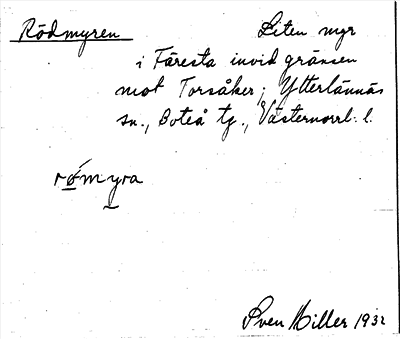 Rödmyren Liten myr
i Färesta invid gränsen
mot Torsåker; Ytterlännäs
sn., Boteå tg., Västernorrl. l.
rǿmyra
Sven Hiller 1932